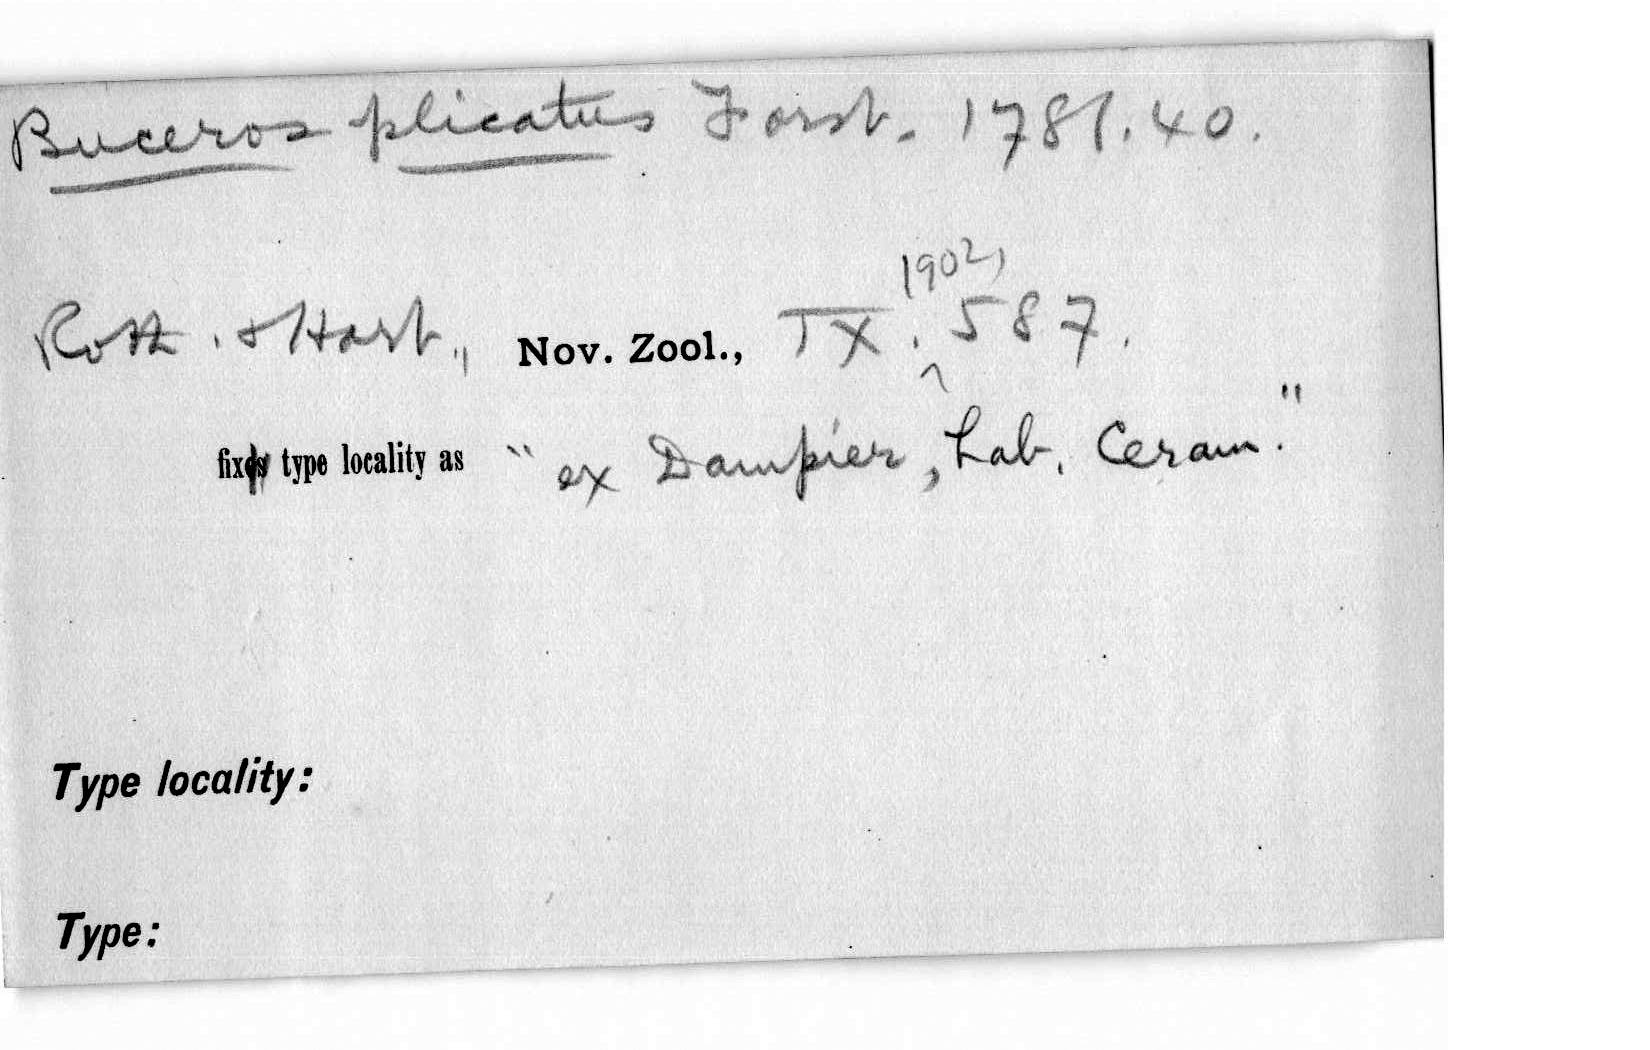 Buceros plicatus Forst. 1781.40.
Roth. & Hart., Nov. Zool., IX. 1902, 587.
fixes type locality as "ex Dampier, hab. Ceram."
Type locality:
Type: